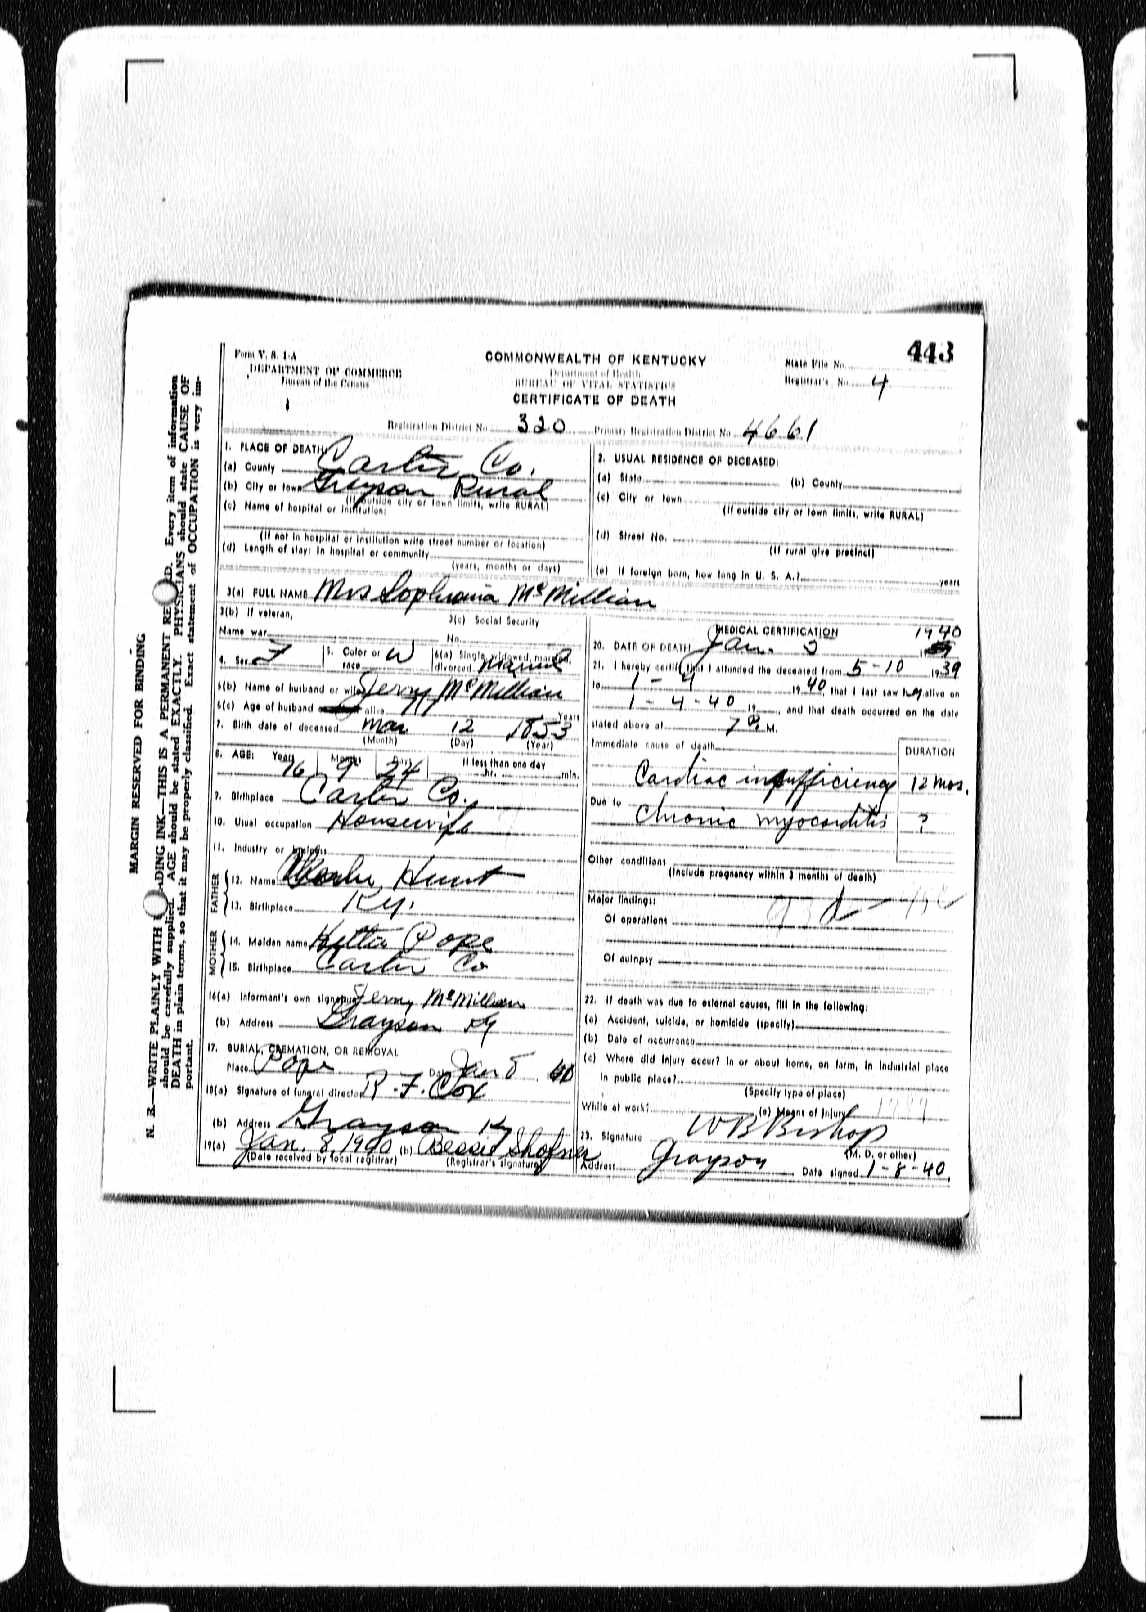 Form V. S. 1-A
DEPARTMENT OF COMMERCE
Bureau of the Census
COMMONWEALTH OF KENTUCKY
Department of Health
BUREAU OF VITAL STATISTICS
CERTIFICATE OF DEATH
443
State File No.
Registrar's No. 4
Registration District No. 320 Primary Registration District No. 4661
MARGIN RESERVED FOR BINDING
N. B.—WRITE PLAINLY WITH ADING INK—THIS IS A PERMANENT RE D. Every item of information
should be carefully supplied. AGE should be stated EXACTLY. PHYSICIANS should state CAUSE OF
DEATH in plain terms, so that it may be properly classified. Exact statement of OCCUPATION is very im-
portant.
1. PLACE OF DEATH:
(a) County Carter Co.
(b) City or town Grayson Rural
(If outside city or town limits, write RURAL)
(c) Name of hospital or institution:
(If not in hospital or institution write street number or location)
(d) Length of stay: In hospital or community
(years, months or days)
2. USUAL RESIDENCE OF DECEASED:
(a) State (b) County
(c) City or town
(If outside city or town limits, write RURAL)
(d) Street No.
(If rural give precinct)
(e) If foreign born, how long in U. S. A.? years
3(a) FULL NAME Mrs Sophronia McMillian
3(b) If veteran,
Name war
3(c) Social Security
No.
4. Sex F
5. Color or
race W
6(a) Single, widowed, married,
divorced Married
6(b) Name of husband or wife Jerry McMillian
6(c) Age of husband or alive years
7. Birth date of deceased Mar 12 1853
(Month) (Day) (Year)
8. AGE: Years Months Days If less than one day
76 9 24 hr. min.
9. Birthplace Carter Co.
10. Usual occupation Housewife
11. Industry or business
FATHER
12. Name Hunt
13. Birthplace Ky.
MOTHER
14. Maiden name Kittie Pope
15. Birthplace Carter Co
16(a) Informant's own signature Jerry McMillian
(b) Address Grayson Ky
17. BURIAL, CREMATION, OR REMOVAL
Place Pope Date Jan 5 40
18(a) Signature of funeral director R. F. Cox
(b) Address Grayson Ky
19(a) Jan. 8, 1940 (b) Bessie Shofner
(Date received by local registrar) (Registrar's signature)
MEDICAL CERTIFICATION
1940
20. DATE OF DEATH Jan. 5
21. I hereby certify that I attended the deceased from 5-10 1939
to 1-4 1940, that I last saw her alive on
1-4-40 19, and that death occurred on the date
stated above at 7 a M.
Immediate cause of death DURATION
Cardiac insufficiency 12 mos.
Due to Chronic myocarditis ?
Other conditions
(Include pregnancy within 3 months of death)
Major findings:
Of operations
Of autopsy
22. If death was due to external causes, fill in the following:
(a) Accident, suicide, or homicide (specify)
(b) Date of occurrence
(c) Where did injury occur? In or about home, on farm, in industrial place
in public place?
(Specify type of place)
While at work? (e) Means of Injury
23. Signature WB Bishop
(M. D. or other)
Address Grayson Date signed 1-8-40